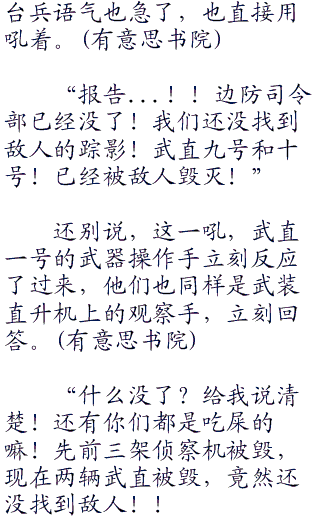 台兵语气也急了，也直接用
吼着。(有意思书院)
“报告...！！边防司令
部已经没了！我们还没找到
敌人的踪影！武直九号和十
号！已经被敌人毁灭！”
还别说，这一吼，武直
一号的武器操作手立刻反应
了过来，他们也同样是武装
直升机上的观察手，立刻回
答。(有意思书院)
“什么没了？给我说清
楚！还有你们都是吃屎的
嘛！先前三架侦察机被毁，
现在两辆武直被毁，竟然还
没找到敌人！！